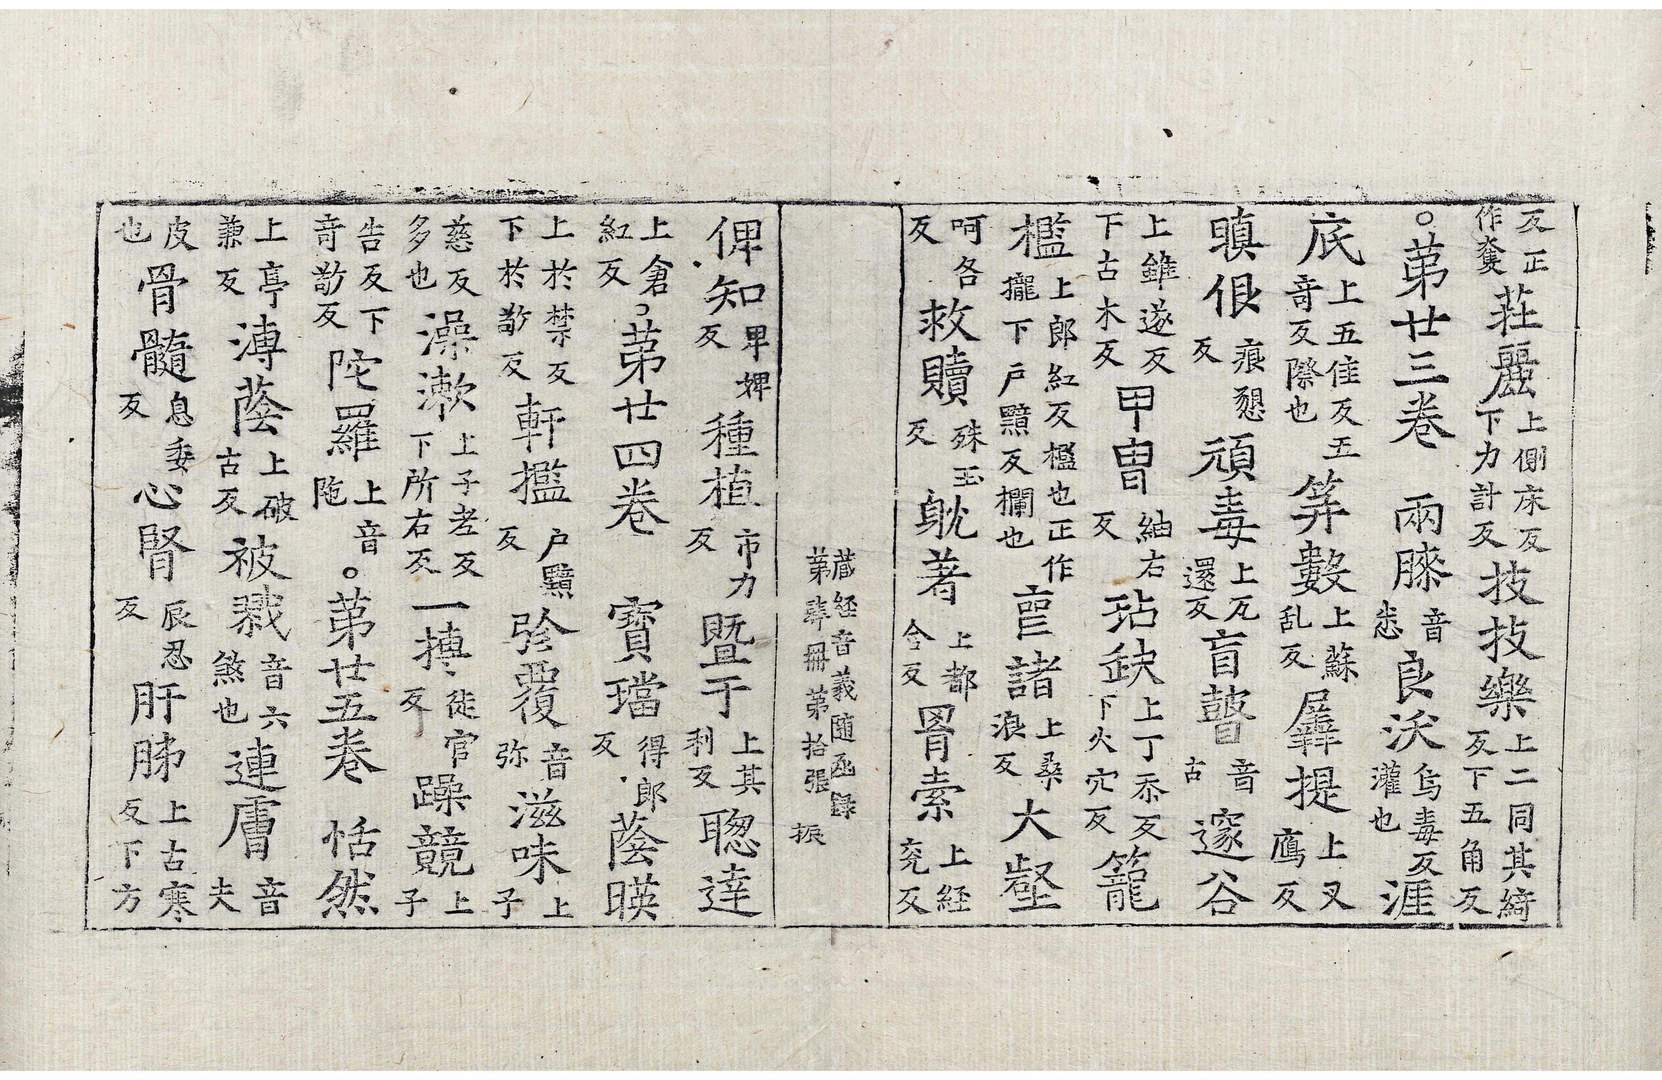 反正作奩莊麗上側床反下力計反技技樂上二同其綺反下五角反
○苐廿三卷　兩膝音悉良沃烏毒反灌也涯
底上五佳反五竒反際也筭數上蘇乱反羼提上叉鴈反
嗔佷痕懇反頑毒上兀還反盲瞽音古邃谷
上雖遂反下古木反甲冑紬右反玷缺上丁忝反下火穴反籠
檻上郎紅反櫳也正作㰍下戶黯反欄也諸上桑浪反大壑
呵各反救贖殊玉反躭著上都含反罥索上経兖反
藏経音義随函録苐冊苐拾張　振
俾知卑婢反種植市力反暨于上其利反聰達
上倉紅反○苐廿四卷　寶璫得郎反蔭暎
上於禁反下於敬反軒檻戶黯反弥覆音弥滋味上子
慈反多也澡漱上子老反下所右反一摶徒官反躁競上子
告反下竒敬反陀羅上音陁○苐廿五卷　恬然
上亭兼反溥蔭上破古反被戮音六煞也連膚音夫
皮也骨髓息委反心腎辰忍反肝肺上古寒反下方